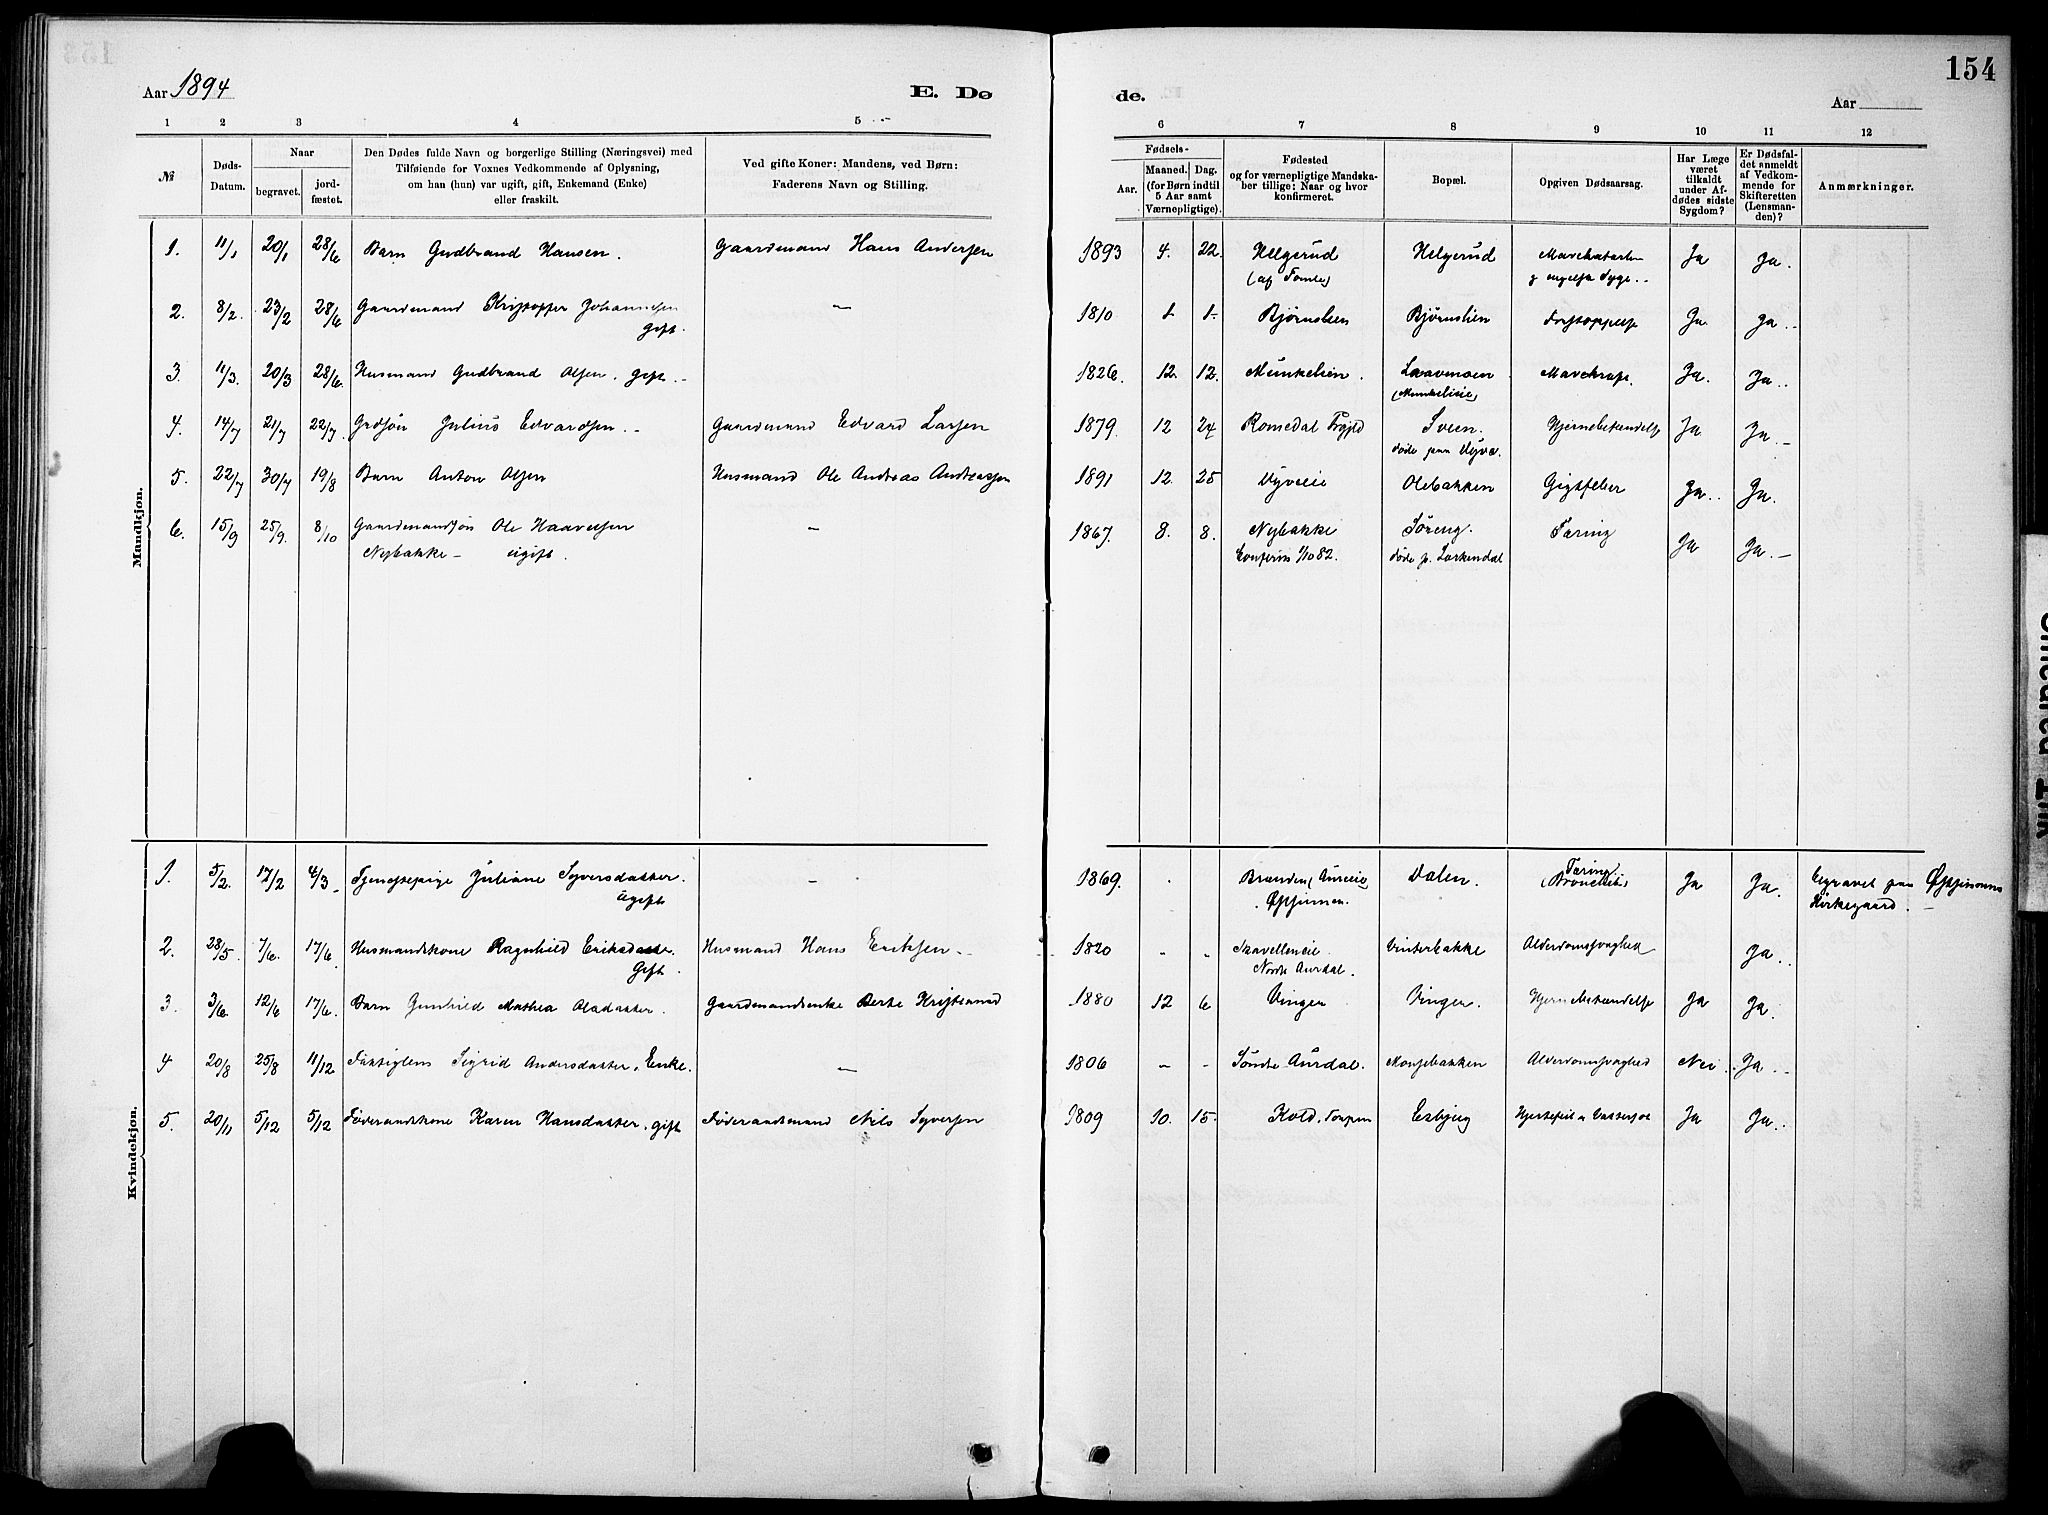 154
Aar 1894
E. Dø
de.
Aar
1 2 3 4 5
6 7 8 9 10 11 12
№
Døds-
Datum.
Naar
begravet.
jord-
fæstet.
Den Dødes fulde Navn og borgerlige Stilling (Næringsvei) med
Tilføiende for Voxnes Vedkommende af Oplysning,
om han (hun) var ugift, gift, Enkemand (Enke)
eller fraskilt.
Ved gifte Koner: Mandens, ved Børn:
Faderens Navn og Stilling.
Fødsels-
Aar.
Maaned. Dag.
(for Børn indtil
5 Aar samt
Værnepligtige).
Fødested
og for værnepligtige Mandska-
ber tillige: Naar og hvor
konfirmeret.
Bopæl.
Opgiven Dødsaarsag.
Har Læge
været
tilkaldt
under Af-
dødes sidste
Sygdom?
Er Dødsfal-
det anmeldt
af Vedkom-
mende for
Skifteretten
(Lensman-
den)?
Anmærkninger.
Mandkjøn.
1. 11/1 20/1 28/6 Barn Gudbrand Hansen. Gaardmand Hans Andersen 1893 4. 22. Helgerud Helgerud Ja Ja.
2. 8/2. 23/2 28/6 Gaardmand Kristoffer Johannesen — 1810 1. 1. Bjørnslien Bjørnslien Forstoppelse Ja. Ja.
gift.
3. 11/3. 20/3 28/6. Husmand Gudbrand Olsen. gift. 1826. 12. 12. Munkelien. Laavemoen Ja. Ja.
(Munkelieie)
4. 14/7 21/7 22/7. Grdsøn Julius Edvardsen. Gaardmand Edvard Larsen 1879. 12 24 Romedal Sveen. Hjernebetændelse Ja Ja.
døde paa
5. 22/7 30/7 19/8 Barn Anton Olsen Husmand Ole Andreas Andreassen 1891 12. 25 Olebakken Gigtfeber Ja. Ja.
6. 15/9 25/9. 8/10 Gaardmandssøn Ole Haaversen — 1867. 8. 8. Nybakke Søreng. Tæring Ja Ja.
Nybakke — ugift. 1/10 82. døde p. Lørkendal
Kvindekjøn.
1. 5/2. 17/2 4/3 Tjenestepige Juliane Syversdatter. — 1869. Dalen. Tæring Ja Ja. begravet paa Øystinsens
ugift (Bronchit) Kirkegaard.
2. 28/5. 7/6. 17/6. Husmandskone Ragnhild Eriksdatter. Husmand Hans Eriksen 1820 - - Vinterbakke Alderdomssvaghed Ja.
Gift. Nordre Aurdal.
3. 3/6. 12/6 17/6. Barn Gunhild Mathea Olsdatter. Gaardmandsenke Berte 1880 12 6 Vingen Vingen. Hjernebetændelse Ja Ja.
4 20/8 25/8 11/12 Fattiglem Sigrid Andersdatter. Enke. — 1806 - - Søndre Aurdal. Alderdomssvaghed Nei. Ja.
5. 20/11 5/12 5/12 Føderaadskone Karen Hansdatter, gift Føderaadsmand Nils Syversen 1809 10. 15. Kold, Esbjug Hjertefeil Ja Ja.